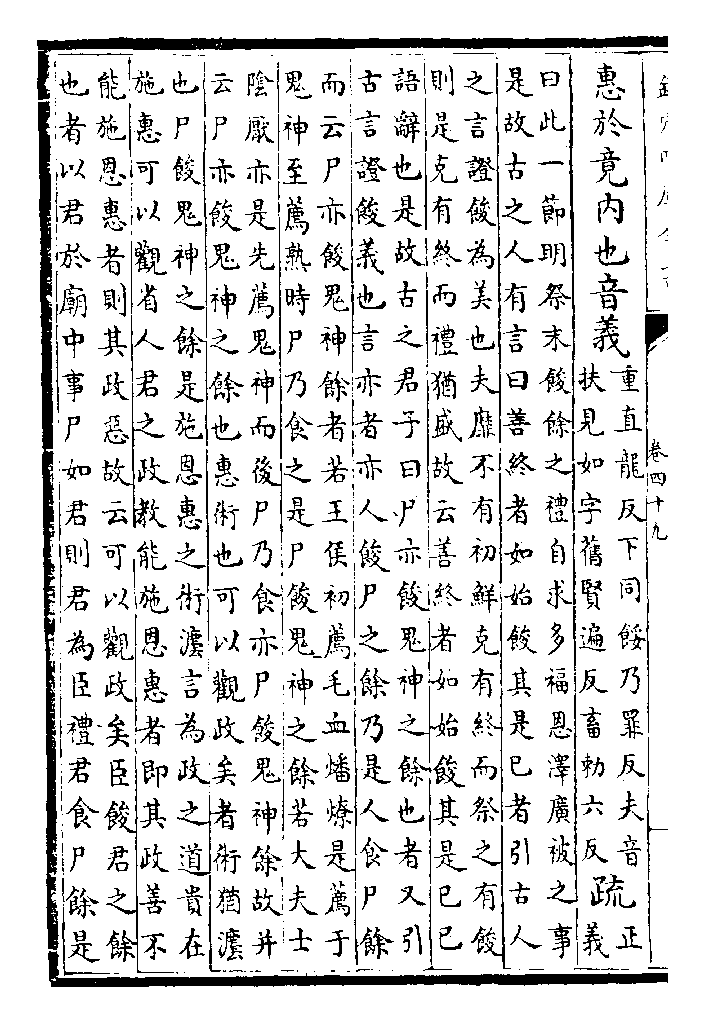 卷四十九
惠於竟内也音義
重直龍反下同餒乃罪反夫音
扶見如字舊賢遍反畜勅六反
疏
正
義
曰此一節明祭末餕餘之禮自求多福恩澤廣被之事
是故古之人有言曰善終者如始餕其是已者引古人
之言證餕為美也夫靡不有初鮮克有終而祭之有餕
則是克有終而禮猶盛故云善終者如始餕其是已已
語辭也是故古之君子曰尸亦餕鬼神之餘也者又引
古言證餕義也言亦者亦人餕尸之餘乃是人食尸餘
而云尸亦餕鬼神餘者若王侯初薦毛血燔燎是薦于
鬼神至薦熟時尸乃食之是尸餕鬼神之餘若大夫士
陰厭亦是先薦鬼神而後尸乃食亦尸餕鬼神餘故并
云尸亦餕鬼神之餘也惠術也可以觀政矣者術猶灋
也尸餕鬼神之餘是施恩惠之術灋言為政之道貴在
施惠可以觀省人君之政教能施恩惠者即其政善不
能施恩惠者則其政惡故云可以觀政矣臣餕君之餘
也者以君於廟中事尸如君則君為臣禮君食尸餘是